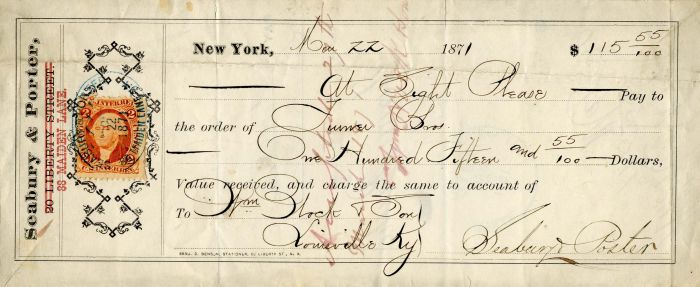 Seabury & Porter,
20 LIBERTY STREET.
33 MAIDEN LANE.
New York, Nov 22 1871 $ 115 55/100
At Sight Please Pay to
the order of Turner Bros.
One Hundred Fifteen and 55/100 Dollars,
Value received, and charge the same to account of
To Wm Stock & Son
Louisville Ky
Seabury & Porter
BENJ. D. BENSON, STATIONER, 62 LIBERTY ST., N. Y.